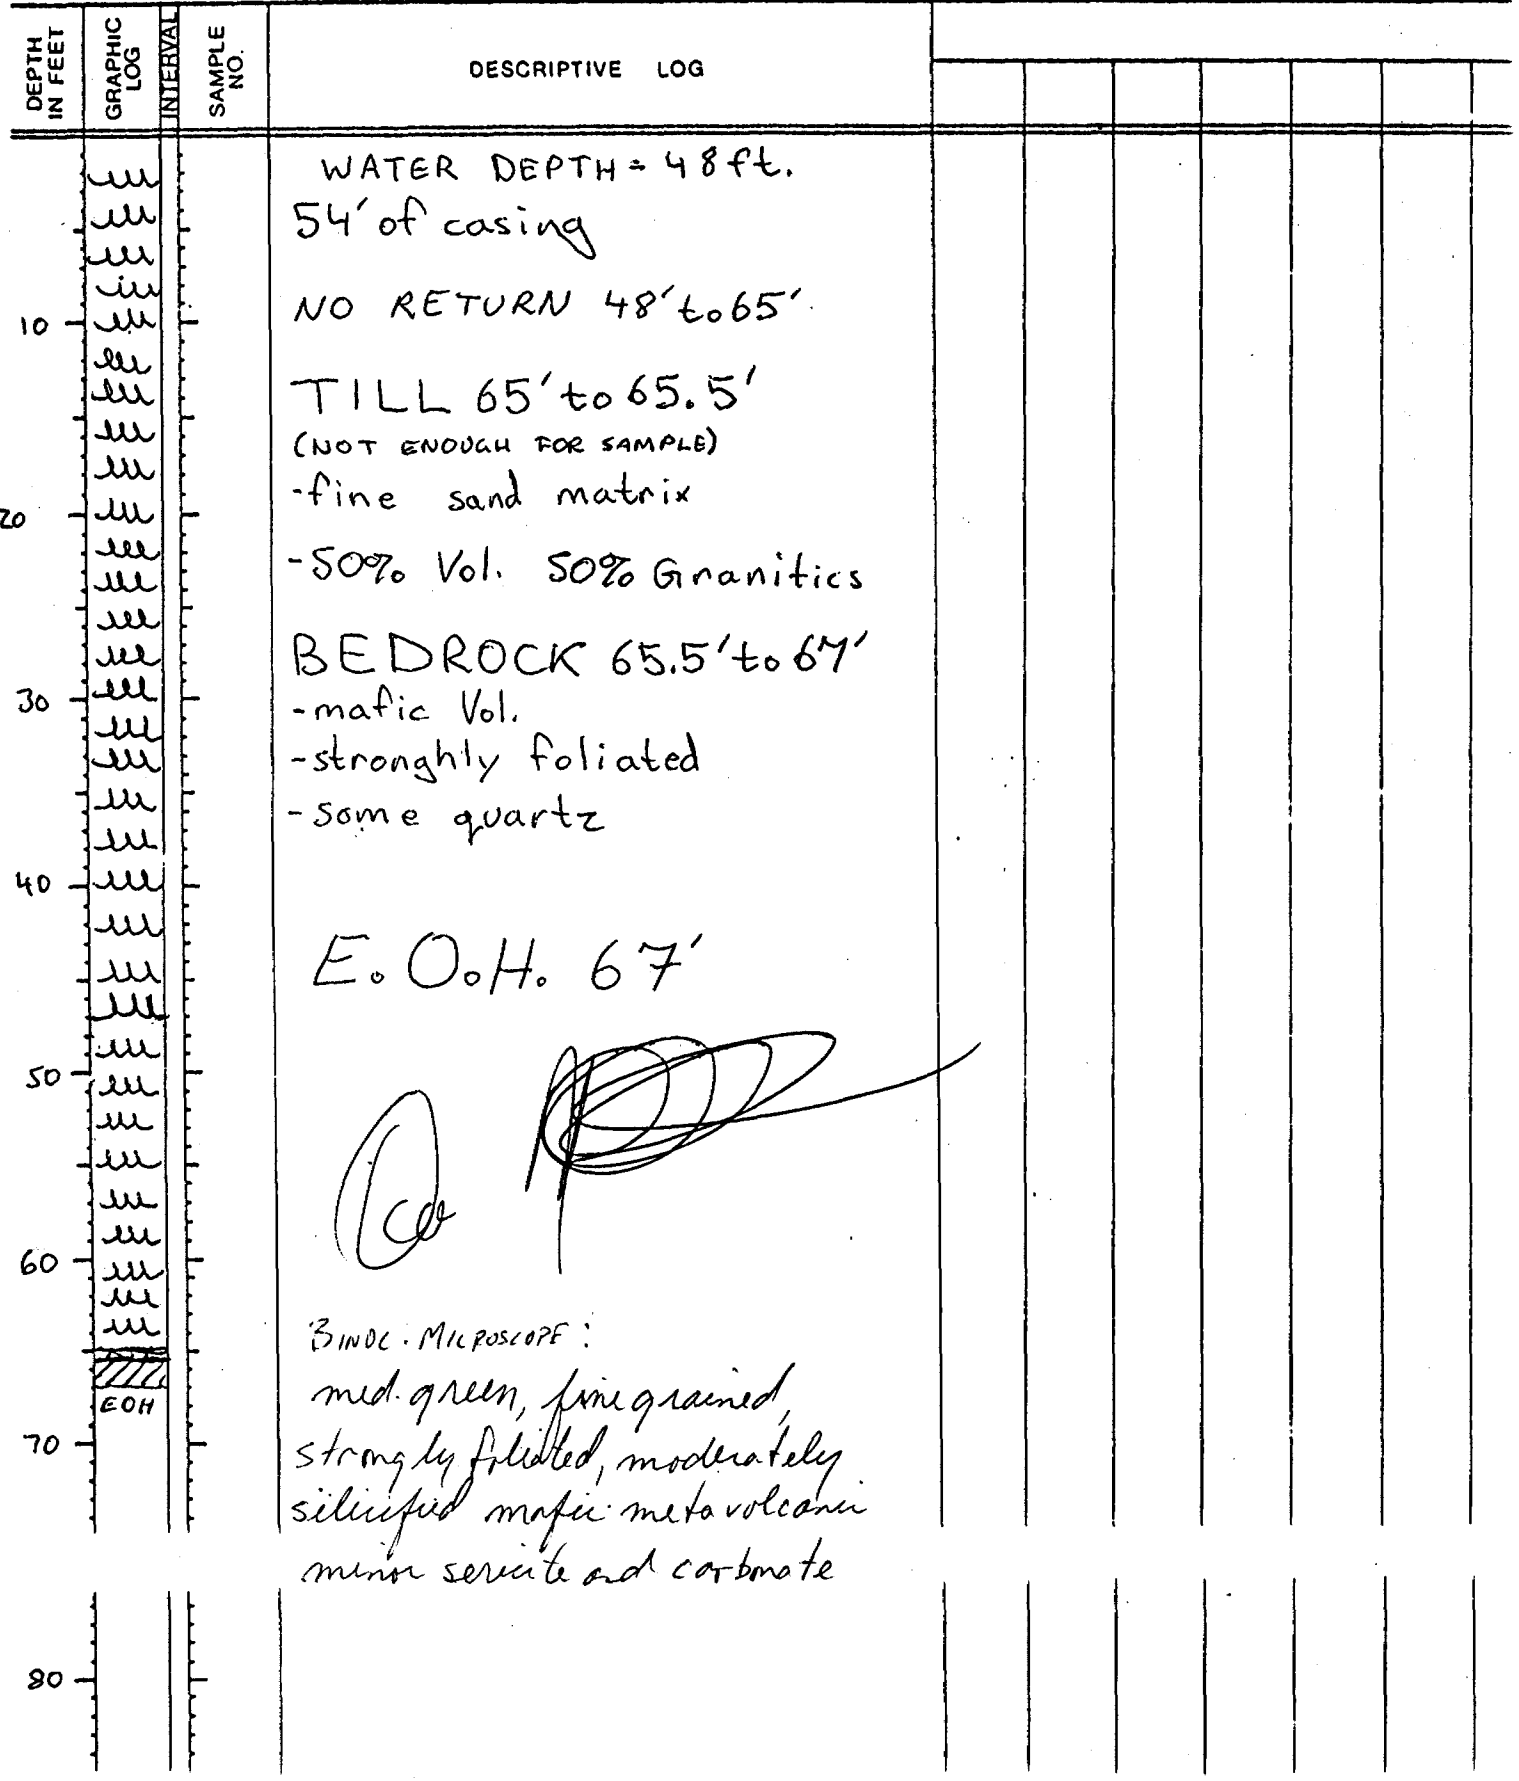 DEPTH IN FEET
GRAPHIC LOG
INTERVAL
SAMPLE NO.
DESCRIPTIVE LOG
WATER DEPTH = 48 ft.
54' of casing
NO RETURN 48' to 65'
10
TILL 65' to 65.5'
(NOT ENOUGH FOR SAMPLE)
-fine sand matrix
20
-50% Vol. 50% Granitics
BEDROCK 65.5' to 67'
30
-mafic Vol.
-stronghly foliated
-some quartz
40
E.O.H. 67'
50
60
BINOC. MICROSCOPE:
med. green, fine grained,
EOH
70
strongly foliated, moderately
silicified mafic metavolcanic
minor sericite and carbonate
80